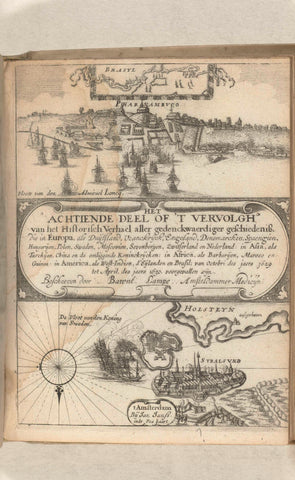 BRASYL
PHARNAMBUCO
Vloote van den Admirael Loncq
HET
ACHTIENDE DEEL OF 'T VERVOLGH
van het Historisch Verhael aller gedenckwaerdiger geschiedeniss,
die in Europa, als Duijtsland, Vranckrijck, Engeland, Denemarcken, Spaengien,
Hungarijen, Polen, Sweden, Moscovien, Sevenbergen, Switserland en Nederland: in Asia, als
Turckijen, China en de omliggende Koninckrijcken: in Africa, als Barbarijen, Maroco en
Guinea: in America, als West-Indien, d'Eylanden en Brasil: van October des jaers 1629
tot April, des jaers 1630, voorgevallen zijn.
Beschreven door Barent Lampe Amsteldammer, Medicijn.
HOLSTEYN
De Vloot van den Koning
van Sweden
STRALSUND
t'Amsterdam
By Jan Janss.